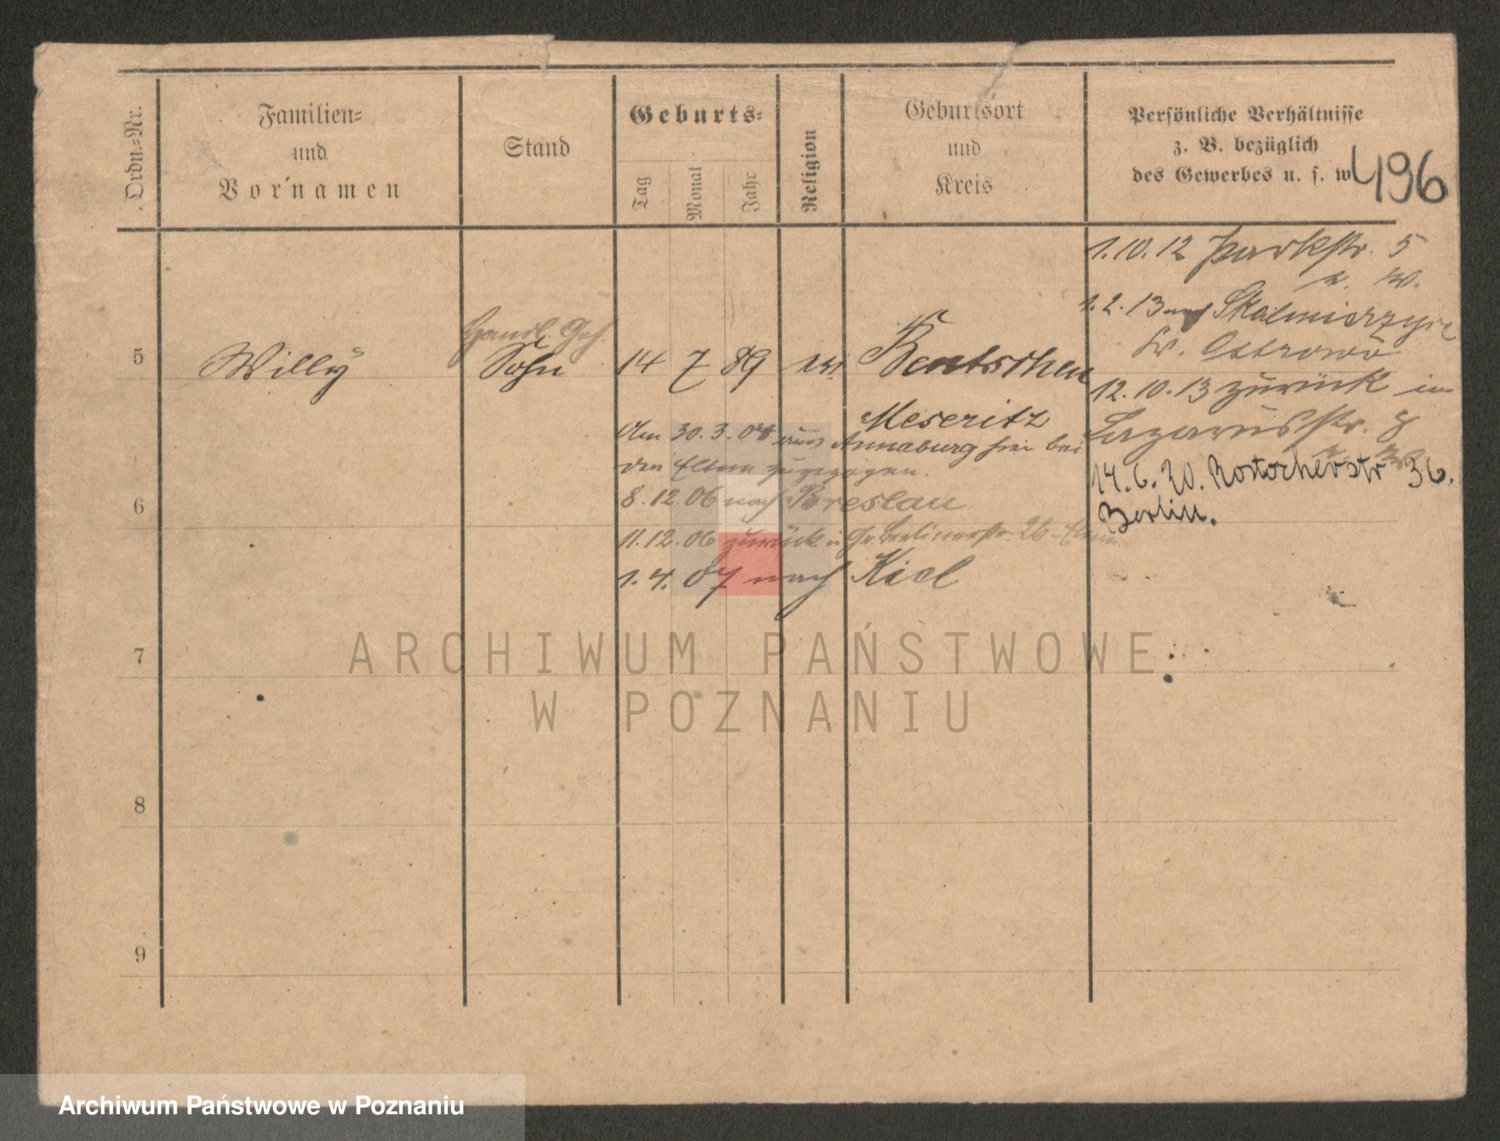 Ordn.-Nr.
Familien-
und
Vornamen
Stand
Geburts-
Tag
Monat
Jahr
Religion
Geburtsort
und
Kreis
Persönliche Verhältnisse
z. B. bezüglich
des Gewerbes u. s. w.
496
5
Willy
Handl. Geh.
Sohn
14 7 89
Bentschen
Meseritz
Am 30.3. aus Annaburg hier bei
den Eltern zugezogen.
8.12.06 nach Breslau
11.12.06 zurück Gr. Berlinerstr. 26
1.4.07 nach Kiel
1.10.12 Parkstr. 5
1.2.13 nach Skalmierzyce
Kr. Ostrowo
12.10.13 zurück in
Lazarusstr. 8
14.6.20. Rostocherstr 36.
Berlin.
6
7
8
9
ARCHIWUM PAŃSTWOWE
W POZNANIU
Archiwum Państwowe w Poznaniu